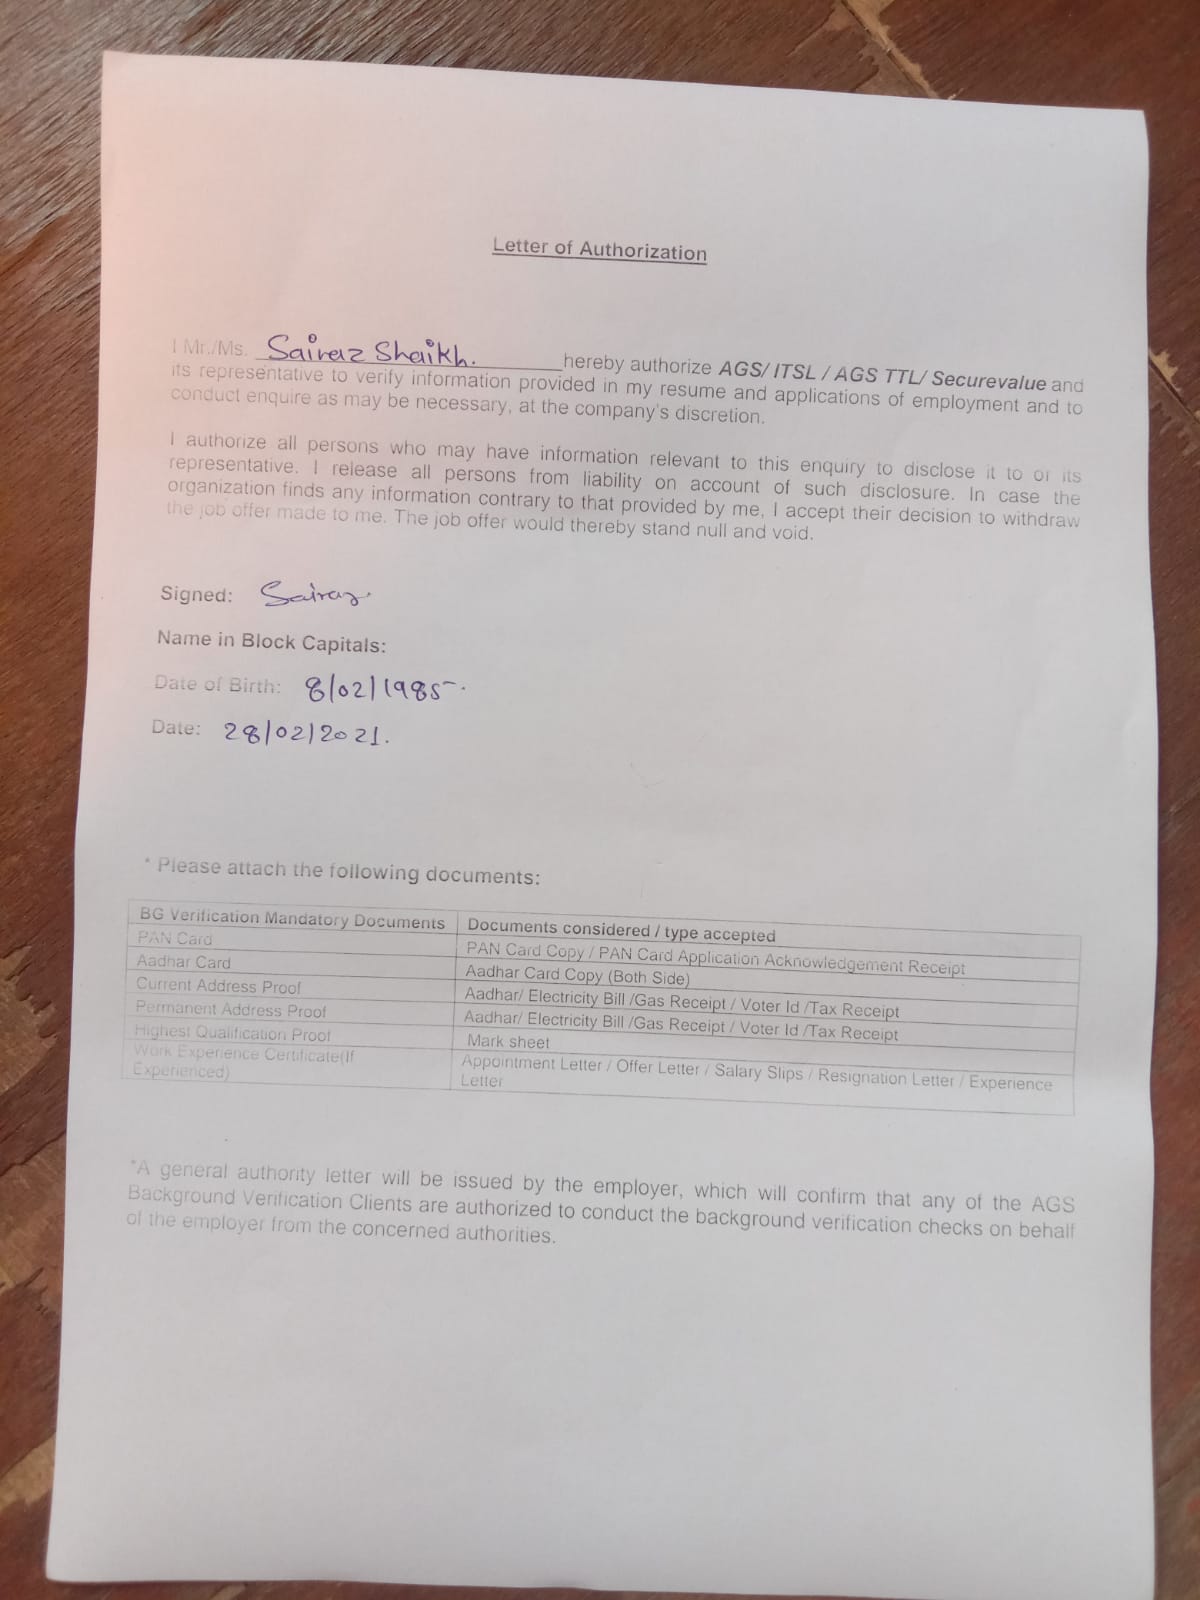 Letter of Authorization
I Mr./Ms. Sairaz Shaikh. hereby authorize AGS/ ITSL / AGS TTL/ Securevalue and
its representative to verify information provided in my resume and applications of employment and to
conduct enquire as may be necessary, at the company's discretion.
I authorize all persons who may have information relevant to this enquiry to disclose it to or its
representative. I release all persons from liability on account of such disclosure. In case the
organization finds any information contrary to that provided by me, I accept their decision to withdraw
the job offer made to me. The job offer would thereby stand null and void.
Signed: Sairaz.
Name in Block Capitals:
Date of Birth: 8/02/1985.
Date: 28/02/2021.
* Please attach the following documents:
BG Verification Mandatory Documents Documents considered / type accepted
PAN Card PAN Card Copy / PAN Card Application Acknowledgement Receipt
Aadhar Card Aadhar Card Copy (Both Side)
Current Address Proof Aadhar/ Electricity Bill /Gas Receipt / Voter Id /Tax Receipt
Permanent Address Proof Aadhar/ Electricity Bill /Gas Receipt / Voter Id /Tax Receipt
Highest Qualification Proof Mark sheet
Work Experience Certificate(If Appointment Letter / Offer Letter / Salary Slips / Resignation Letter / Experience
Experienced) Letter
*A general authority letter will be issued by the employer, which will confirm that any of the AGS
Background Verification Clients are authorized to conduct the background verification checks on behalf
of the employer from the concerned authorities.